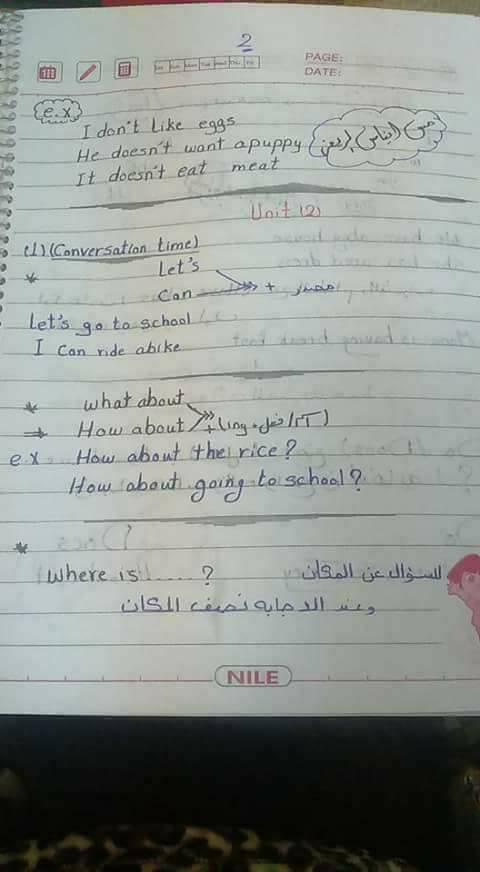 2
PAGE:
DATE:
e.x
I don't Like eggs
He doesn't want apuppy
It doesn't eat meat
Unit (2)
(1) (Conversation time)
* Let's
Can + مصدر
Let's go to school
I Can ride abike
* what about
⇒ How about + (ing + فعل / اسم)
e.x How about the rice?
How about going to school?
* Where is ......? للسؤال عن المكان
وعند الاجابه نصف المكان
NILE